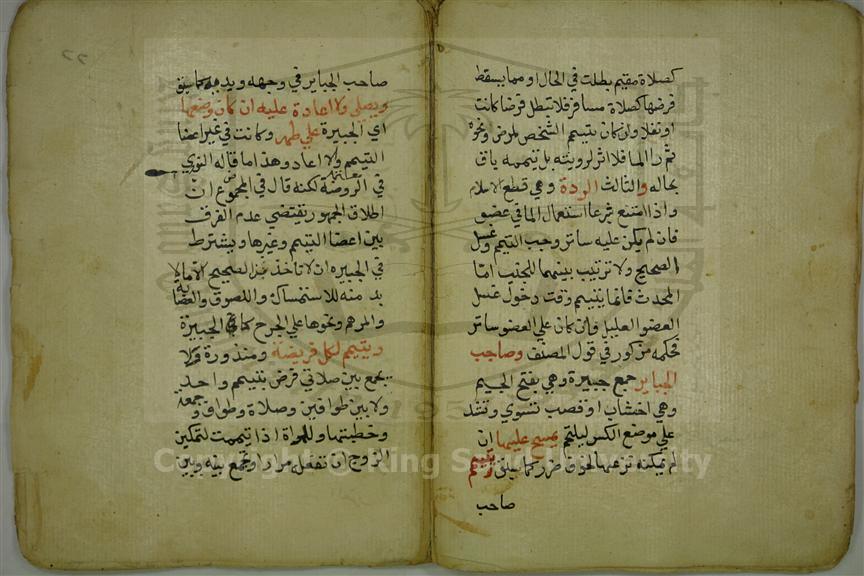 كصلاة مقيم بطلت في الحال او مما يسقط
فرضها كصلاة مسافر فلا تبطل فرضا كانت
او نفلا وان كان بتيمم الشخص لمرض ونحوه
ثم را الما فلا اثر لرويته بل تيممه باق
بحاله والثالث الردة وهي قطع الاسلام
واذا امتنع شرعا استعمال الما في عضو
فان لم يكن عليه ساتر وجب التيمم وغسل
الصحيح ولا ترتيب بينهما للجنب اما
المحدث فانما يتيمم وقت دخول غسل
العضو العليل فان كان علي العضو ساتر
فحكمه مذكور في قول المصنف وصاحب
الجباير جمع جبيرة وهي بفتح الجيم
وهي اخشاب او قصب تسوي وتشد
علي موضع الكسر ليلتحم يمسح عليها ان
لم يمكنه نزعها لخوف ضرر كما سبق ويتيمم
صاحب
صاحب الجباير في وجهه ويديه كما سبق
ويصلي ولا اعادة عليه ان كان وضعها
اي الجبيرة علي طهر وكانت في غير اعضا
التيمم والا اعاد وهذا ما قاله النووي
في الروضة لكنه قال في المجموع ان
اطلاق الجمهور يقتضي عدم الفرق
بين اعضا التيمم وغيرها ويشترط
في الجبيره ان لا تاخذ من الصحيح الا ما لا
بد منه للاستمساك واللصوق والعصابة
والمرهم ونحوها علي الجرح كالجبيرة
ويتيمم لكل فريضة ومنذورة فلا
يجمع بين صلاتي فرض بتيمم واحد
ولا بين طوافين وصلاة وطواف وجمعة
وخطبتها وللمراة اذا تيممت لتمكين
الزوج ان تفعل مرارا وتجمع بينه وبين
Copyright © King Saud University
1957